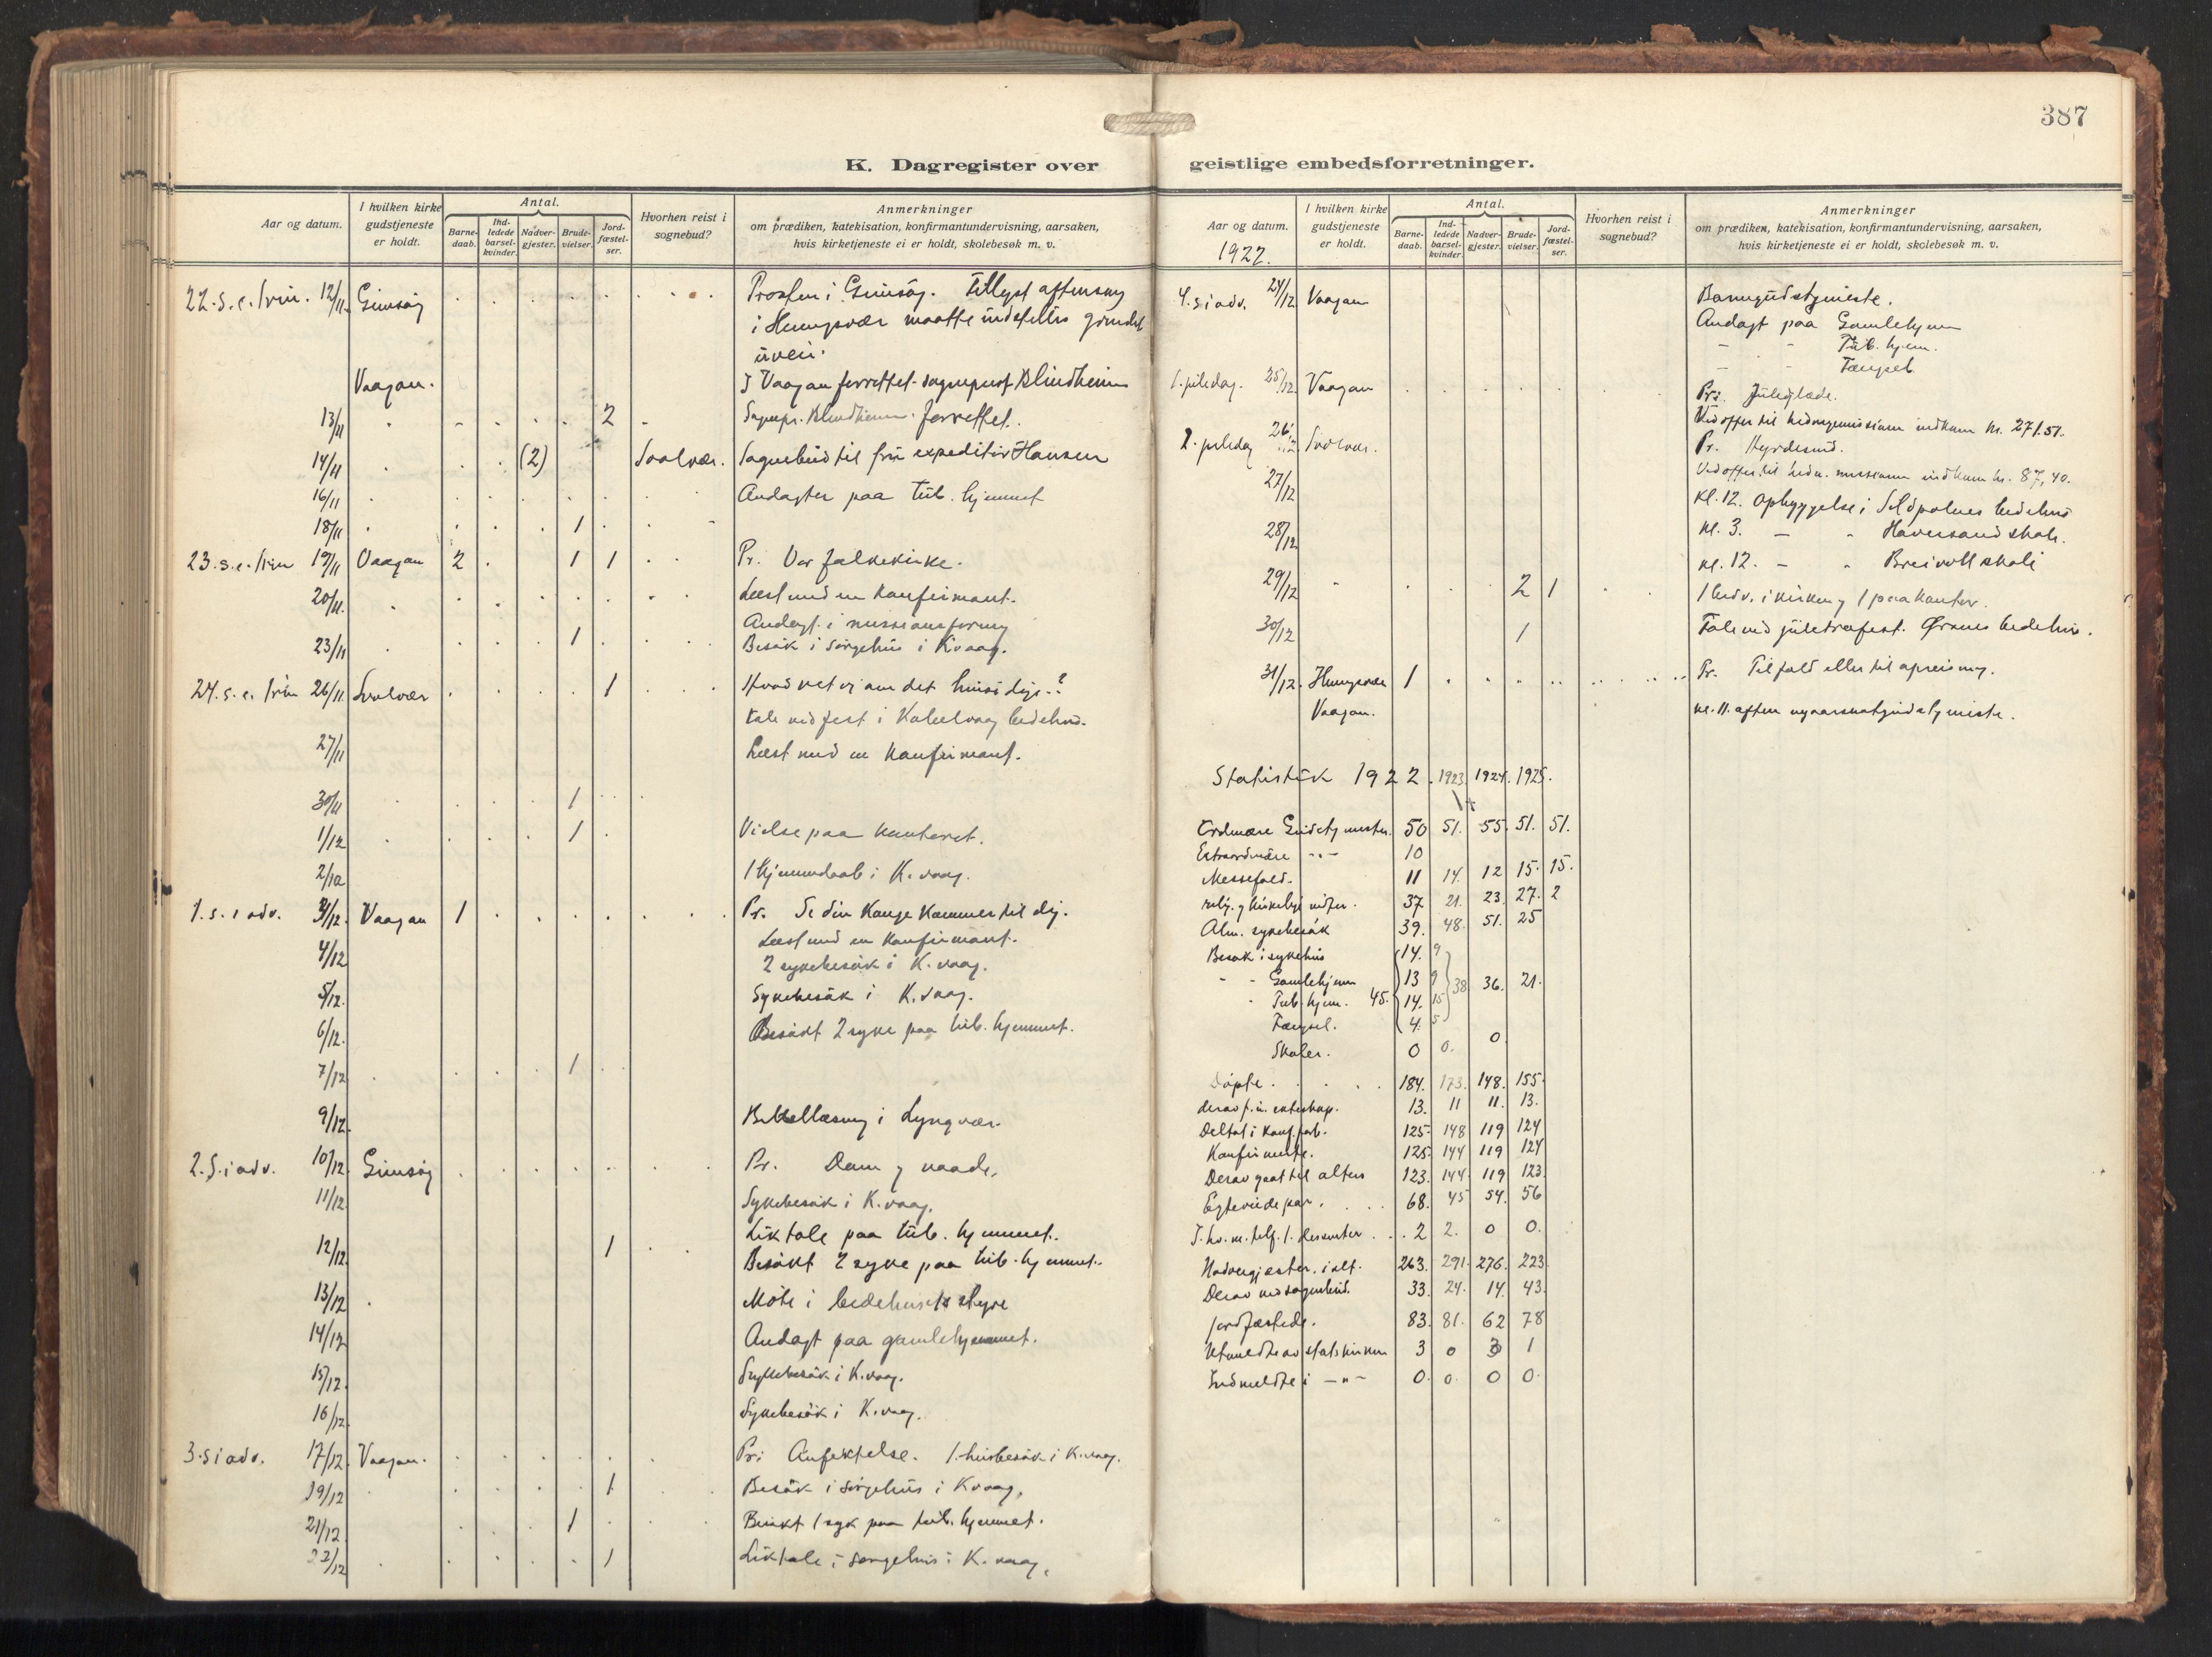 387
K. Dagregister over geistlige embedsforretninger.
Aar og datum.
I hvilken kirke gudstjeneste er holdt.
Antal.
Barne-daab.
Ind-ledede barsel-kvinder.
Nadver-gjester.
Brude-vielser.
Jord-fæstel-ser.
Hvorhen reist i sognebud?
Anmerkninger
om prædiken, katekisation, konfirmantundervisning, aarsaken,
hvis kirketjeneste ei er holdt, skolebesøk m. v.
22. s. e. trin. 12/11 Gimsöy Prosten i Gimsöy. Tillyst aftensang
i Henningsvær maatte indstilles grundet
uveir.
Vaagan. I Vaagan forrettet sogneprest Blindheim
13/11 2 Sognepr. Blindheim forrettet.
14/11 (2) Svolvær. Sognebud til fru expeditör Hansen
16/11 Andagter paa tub. hjemmet
18/11 1
23. s. e. trin 19/11 Vaagan 2 1 1 Pr. Vor folkekirke.
20/11 Læst med en konfirmant.
Andagt i missionsforening
23/11 1 Besök i sörgehus i K.vaag.
24. s. e. trin 26/11 Svolvær 1 Hvad vet vi om det hinsidige?
Tale ved fest i Kabelvaag bedehus.
27/11 Læst med en konfirmant.
30/11 1
1/12 1 Vielse paa kontoret.
2/12 1 hjemmedaab i K.vaag.
1. s. i adv. 3/12 Vaagan 1 Pr. Se din konge kommer til dig.
Læst med en konfirmant.
4/12 2 sykebesök i K.vaag.
5/12 Sykebesök i K.vaag.
6/12 Besökt 2 syke paa tub. hjemmet.
7/12 1
9/12 Bibellæsning i Lyngvær
2. S. i adv. 10/12 Gimsöy Pr. Dom og naade.
11/12 Sykebesök i K.vaag.
Liktale paa tub. hjemmet.
12/12 1 Besökt 2 syke paa tub. hjemmet.
13/12 Möte i bedehusets styre
14/12 Andagt paa gamlehjemmet.
15/12 Sykebesök i K.vaag.
16/12 Sykebesök i K.vaag.
3. s i adv. 17/12 Vaagan. Pr: Anfektelse. 1 husbesök i K.vaag.
19/12 1 Besök i sörgehus i K.vaag.
21/12 1 Besökt 1 syk paa tub. hjemmet.
22/12 1 Liktale i sorgehus i K.vaag.
Aar og datum.
1922.
I hvilken kirke gudstjeneste er holdt.
Antal.
Barne-daab.
Ind-ledede barsel-kvinder.
Nadver-gjester.
Brude-vielser.
Jord-fæstel-ser.
Hvorhen reist i sognebud?
Anmerkninger
om prædiken, katekisation, konfirmantundervisning, aarsaken,
hvis kirketjeneste ei er holdt, skolebesøk m. v.
4. s i adv. 24/12 Vaagan Barnegudstjeneste.
Andagt paa Gamlehjem
- - Tub. hjem.
- - Fængsel
1. juledag. 25/12 Vaagan Pr: Juleglæde.
Ved offer til hedningemissionen indkom kr. 271.51.
2. juledag 26/12 Svolvær. Pr. Hyrdesind.
Ved offer til hedn. missionen indkom kr. 87,40.
27/12 Kl. 12. Opbyggelse i Sildpolnes bedehus
kl. 3. - Haversand skole.
28/12 kl. 12. - Breivoll skole
29/12 2 1 1 bedv. i kirken og 1 paa kontor.
30/12 1 Tale ved juletræfest. Ørsnes bedehus.
31/12. Henningsvær 1 Pr. Til fald eller til opreisning.
Vaagan. kl. 11. aften nyaarsnatgudstjeneste.
Statistik 1922. 1923. 1924. 1925.
Ordinære Gudstjenester. 50 51. 55. 51. 51.
Extraordinære -"- 10
Messefald. 11 14. 12 15. 15.
37 21. 23. 27. 2
Alm. sykebesök 39. 48. 51. 25
Besök i sykehus 14. 9
- - Gamlehjem 13 9 38 36. 21.
- Tub. hjem. 45. 14. 15
Fængsel. 4. 5
Skoler. 0 0. 0
Döpte. 184. 173. 148. 155.
derav f. u. ekteskap. 13. 11 11. 13.
Deltat i konf.forb. 125. 148 119 124
Konfirmerte. 125. 144 119 124
Derav gaat til alters 123. 144 119 123
Egteviede par. 68. 45 54. 56
2 2. 0 0.
Nadvergjester i alt. 263. 291. 276. 223.
Derav ved sognebud. 33. 24. 14. 43.
Jordfæstede. 83. 81. 62 78
Utmeldte av statskirken 3 0 3 1
Indmeldte i -"- 0. 0. 0 0.